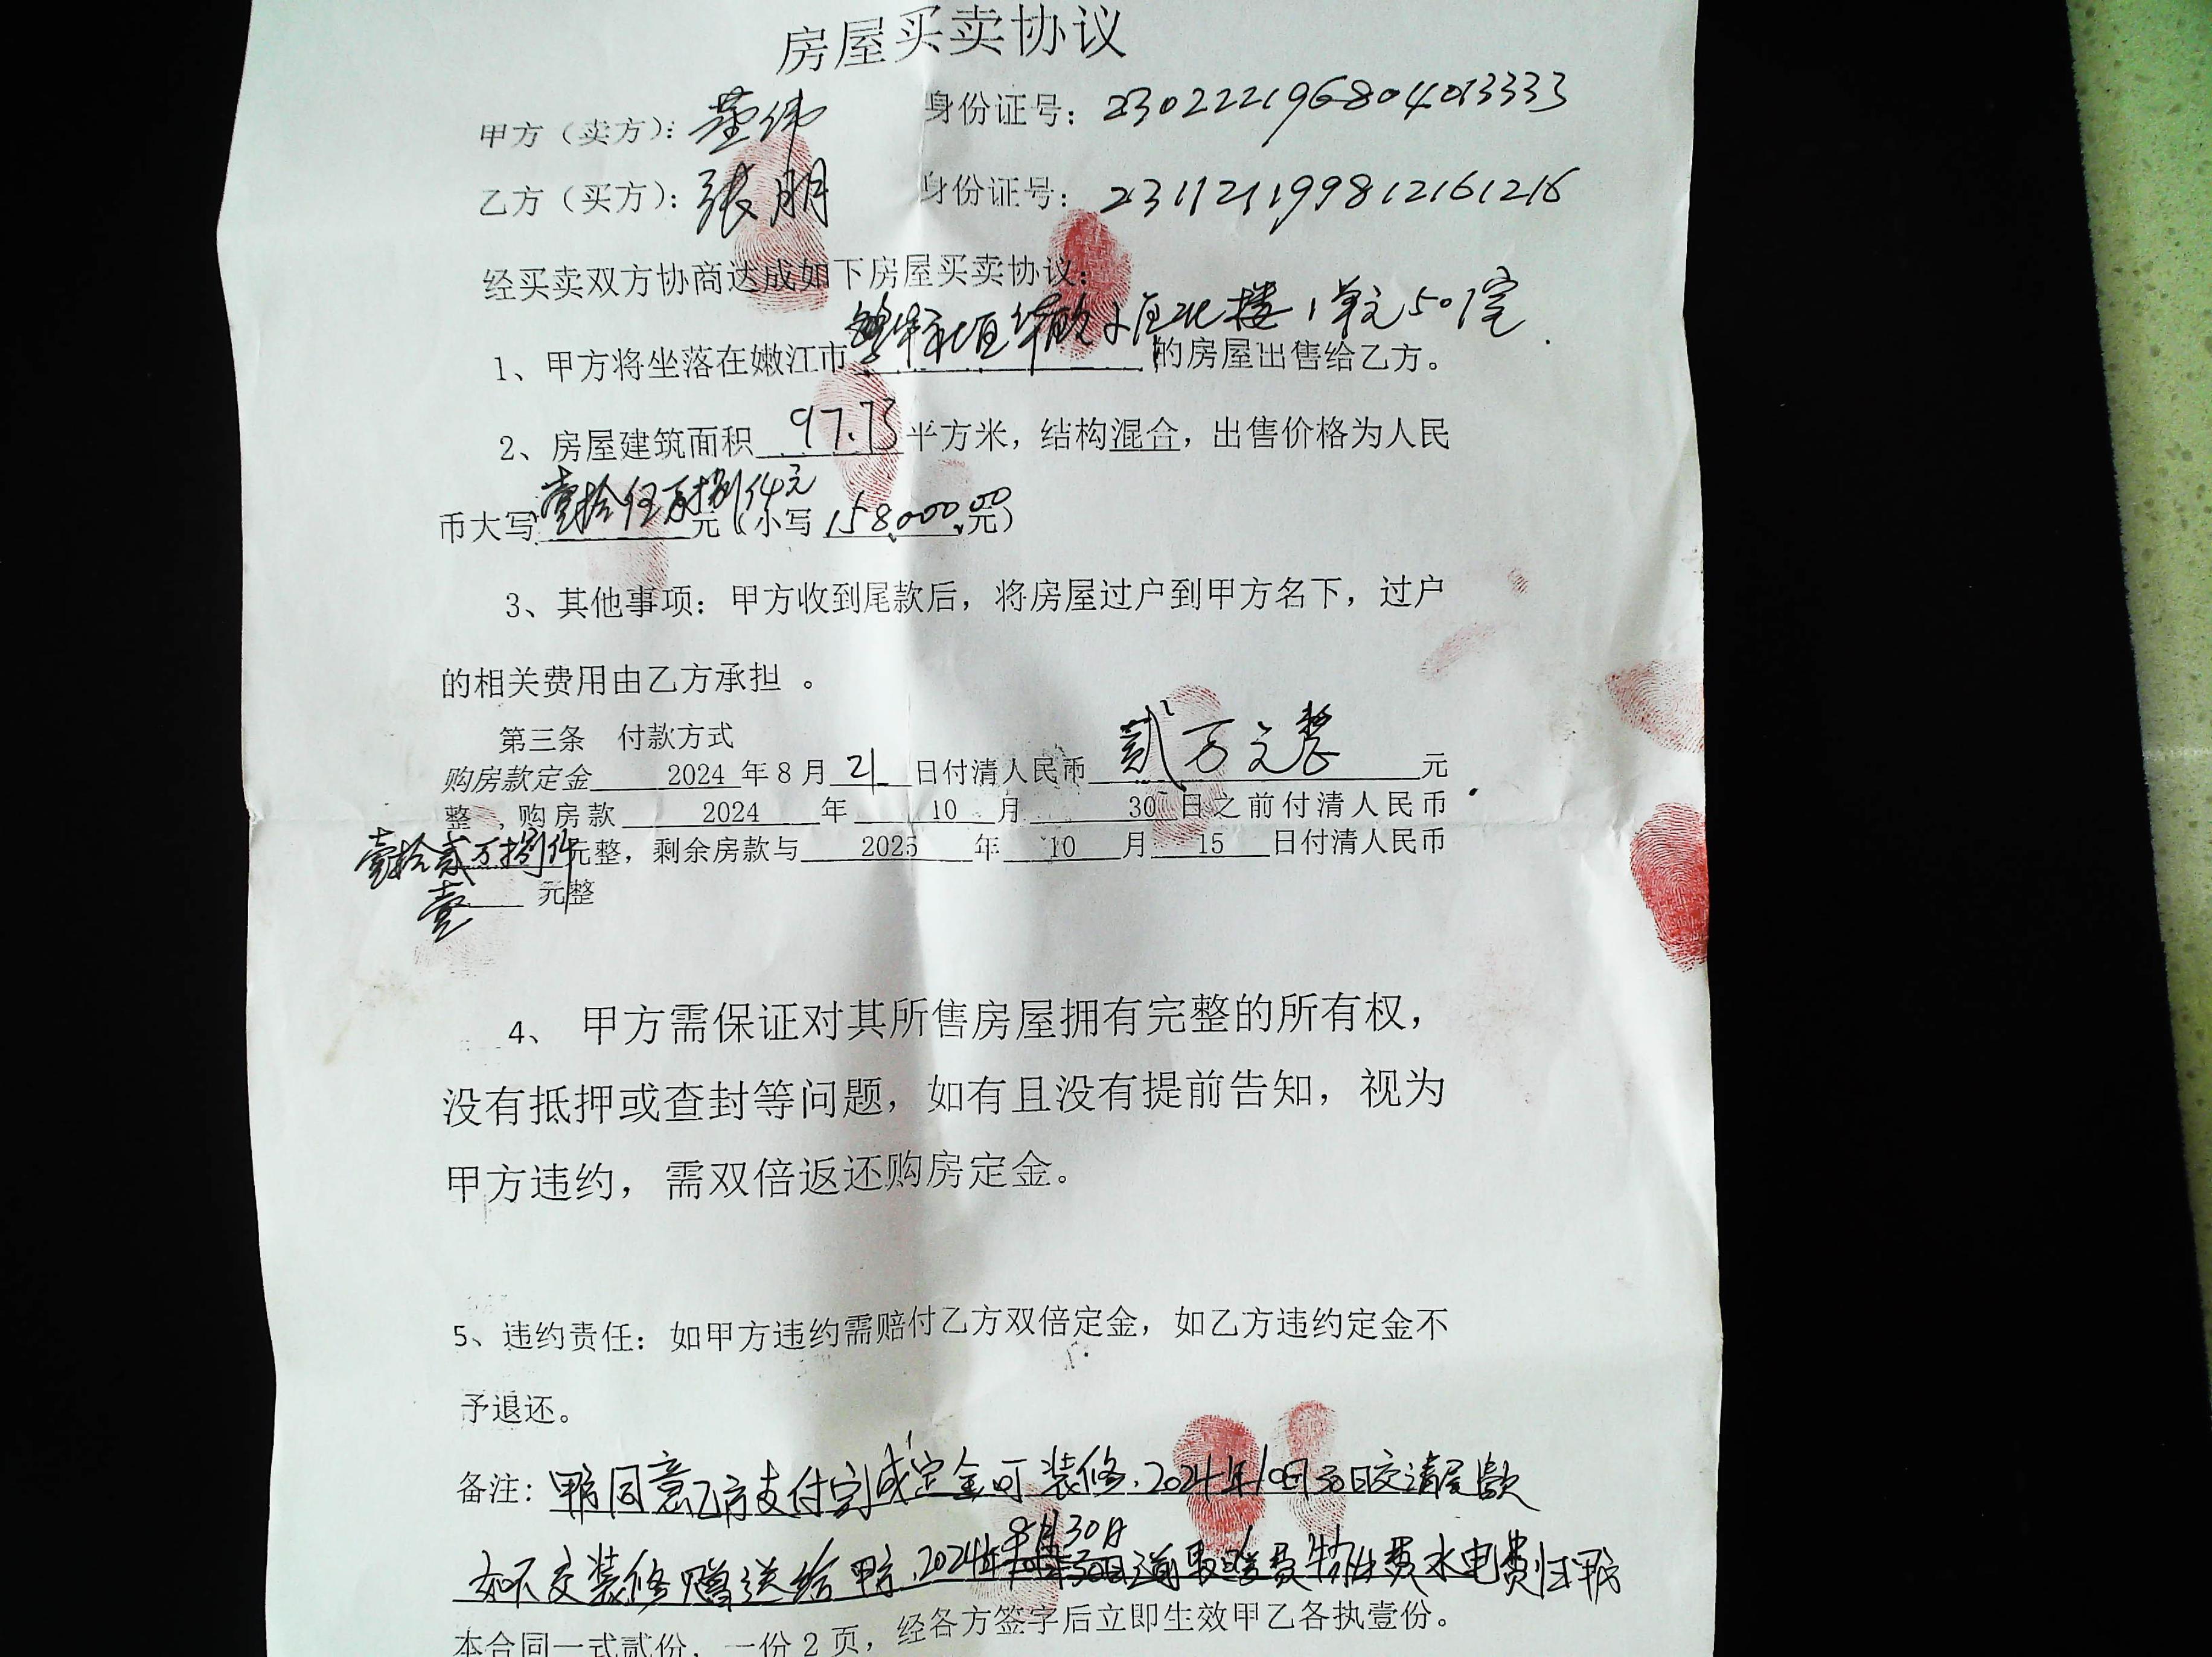 房屋买卖协议
甲方（卖方）：董伟 身份证号：230222196804013333
乙方（买方）：张朋 身份证号：231121199812161216
经买卖双方协商达成如下房屋买卖协议：
小区 楼1单元501室
1、甲方将坐落在嫩江市 的房屋出售给乙方。
2、房屋建筑面积 97.73 平方米，结构混合，出售价格为人民
币大写 壹拾伍万捌仟元 元（小写 158,000.00 元）
3、其他事项：甲方收到尾款后，将房屋过户到甲方名下，过户
的相关费用由乙方承担 。
第三条 付款方式
购房款定金 2024 年 8 月 21 日付清人民币 贰万元整 元
整 ，购房款 2024 年 10 月 30 日之前付清人民币
壹拾贰万捌仟 元整，剩余房款与 2025 年 10 月 15 日付清人民币
壹 元整
4、 甲方需保证对其所售房屋拥有完整的所有权，
没有抵押或查封等问题，如有且没有提前告知，视为
甲方违约，需双倍返还购房定金。
5、违约责任：如甲方违约需赔付乙方双倍定金，如乙方违约定金不
予退还。
备注：甲方同意乙方支付完成定金可装修，2024年10月30日交清尾款
如不交装修赠送给甲方，2024年8月30日 前取暖费物业费水电费归甲方
本合同一式贰份，一份 2 页，经各方签字后立即生效甲乙各执壹份。